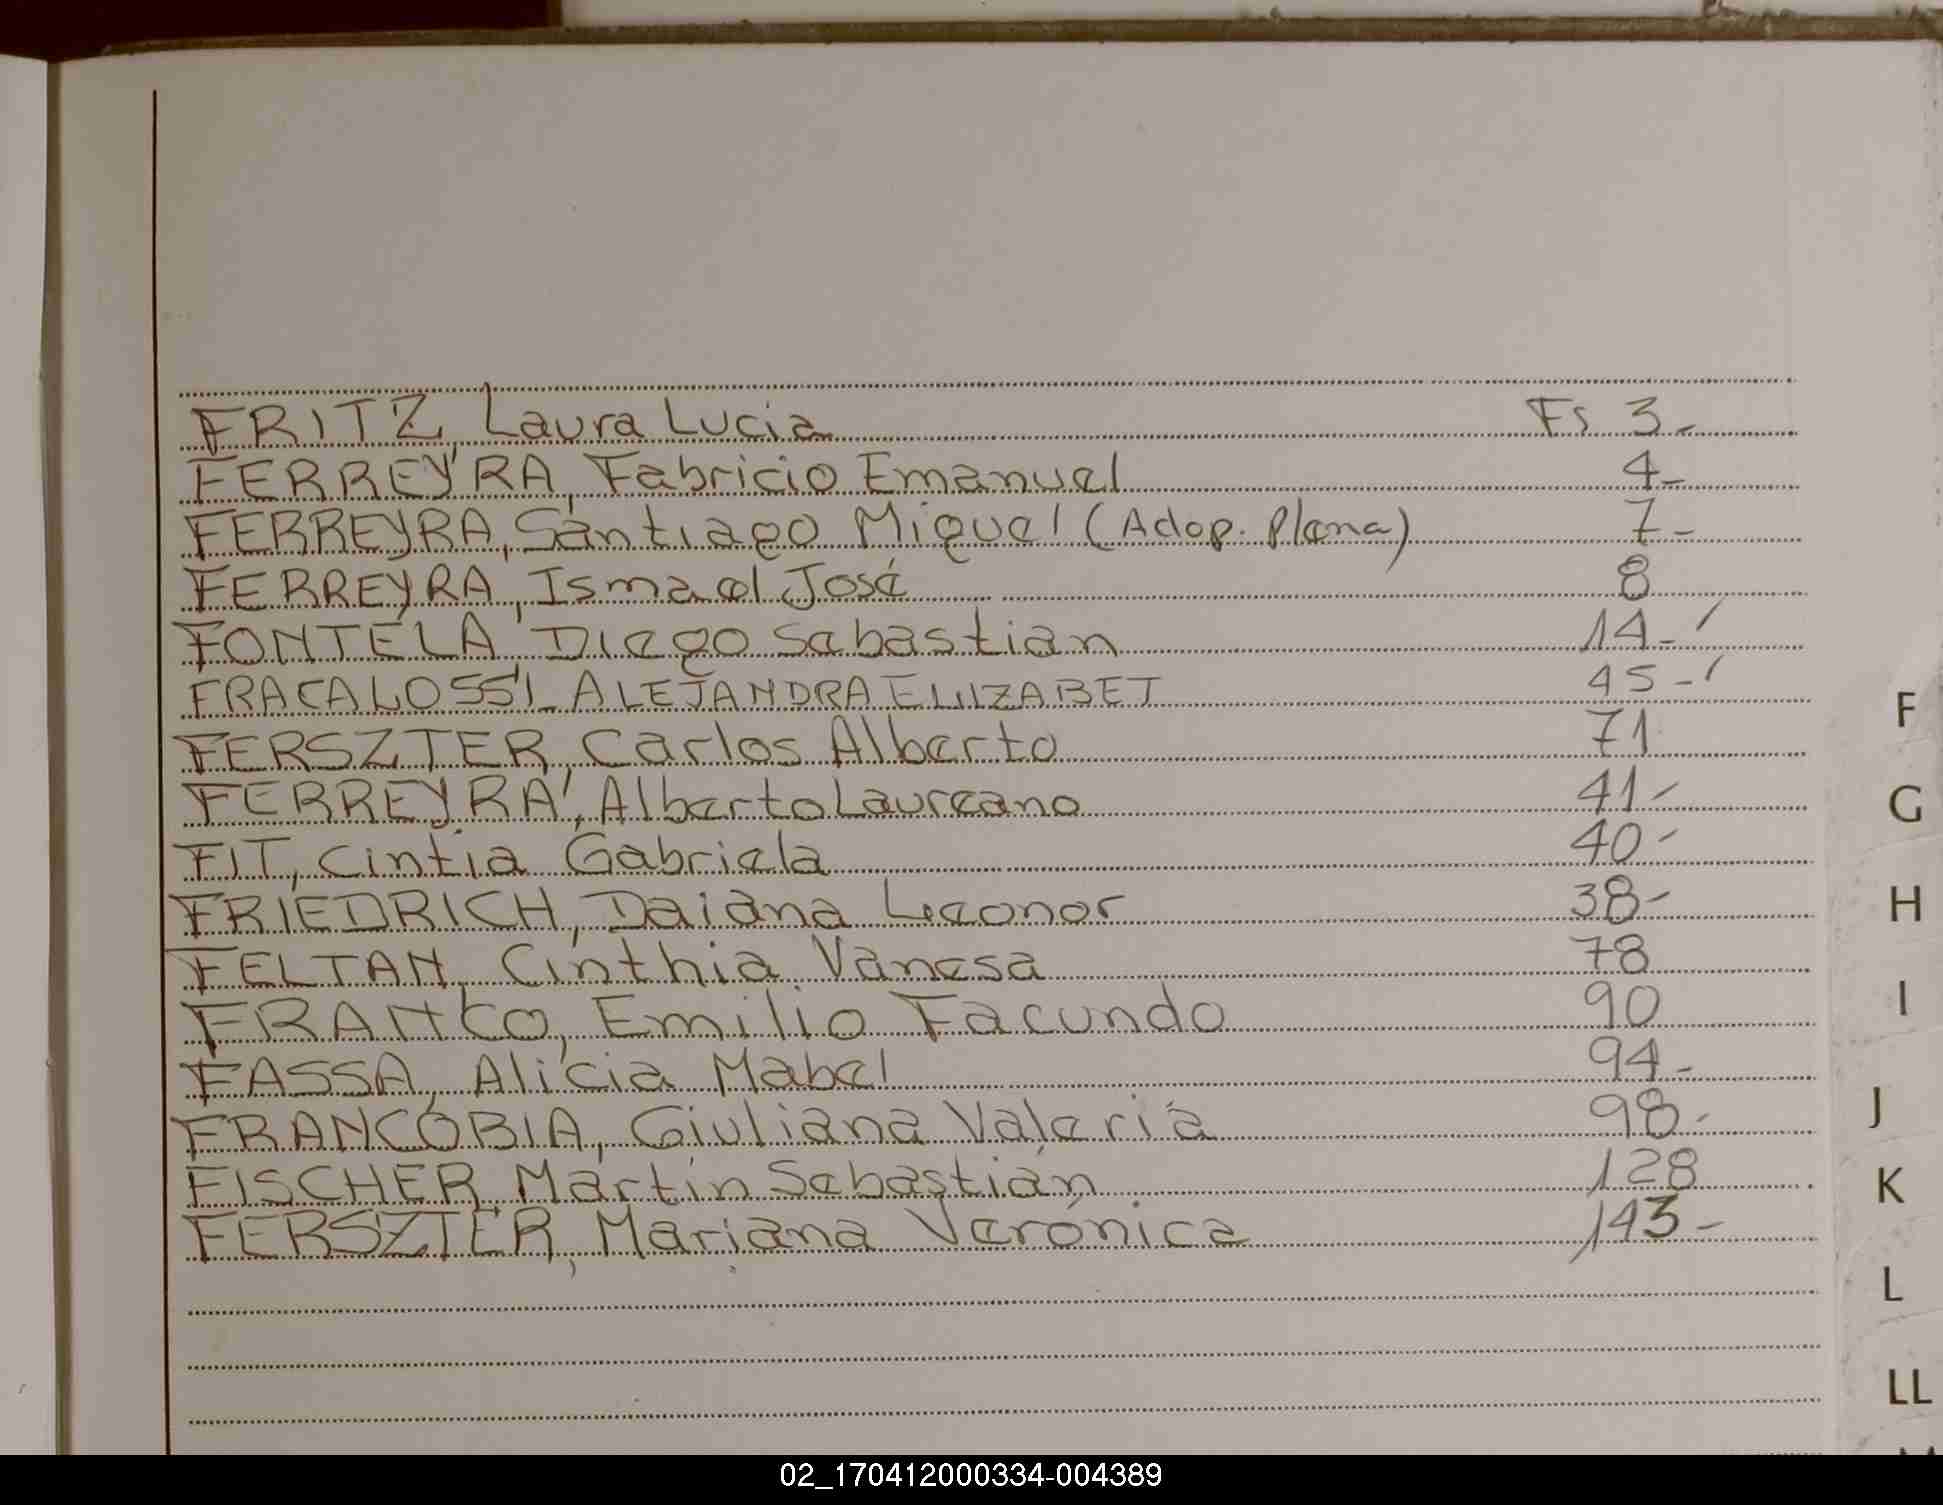 FRITZ, Laura Lucia Fs 3-
FERREYRA, Fabricio Emanuel 4-
FERREYRA, Santiago Miguel (Adop. Plena) 7-
FERREYRA, Ismael José 8
FONTELA, Diego Sebastian 14-
FRACALOSSI_ ALEJANDRA ELIIZABET 45-
FERSZTER, Carlos Alberto 71
FERREYRA, Alberto Laureano 41-
FIT, Cintia Gabriela 40-
FRIEDRICH, Daiana Leonor 38-
FELTAN, Cinthia Vanesa 78
FRANCO, Emilio Facundo 90
FASSA, Alicia Mabel 94-
FRANCOBIA, Giuliana Valeria 98-
FISCHER, Martín Sebastián 128
FERSZTER, Mariana Verónica 143-
F
G
H
I
J
K
L
LL
02_170412000334-004389